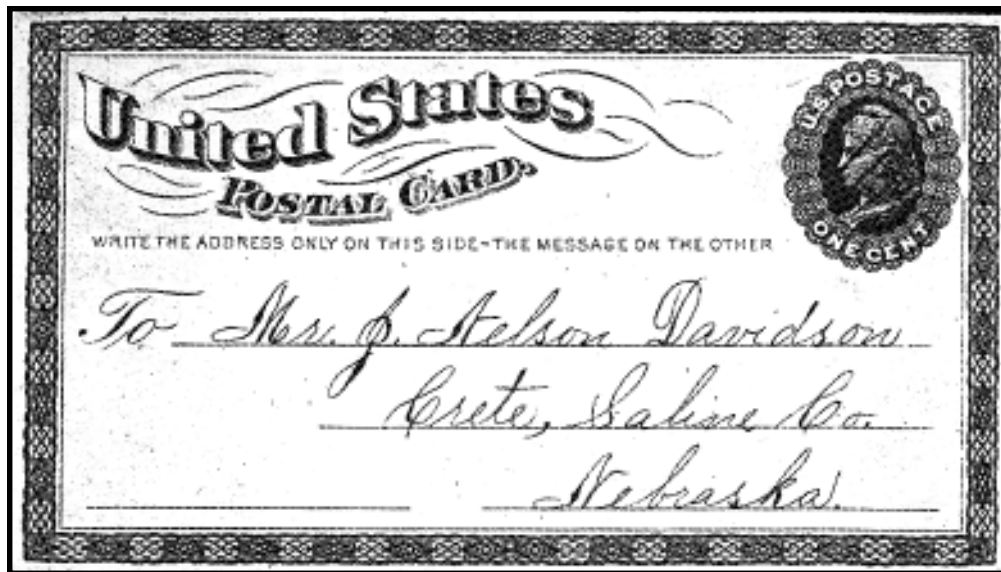 United States
POSTAL CARD.
U.S. POSTAGE
ONE CENT
WRITE THE ADDRESS ONLY ON THIS SIDE-THE MESSAGE ON THE OTHER
To Mr. J. Nelson Davidson
Crete, Saline Co.
Nebraska.